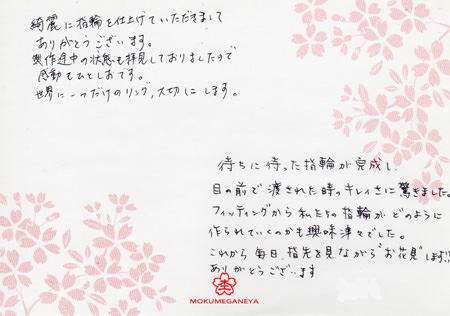 綺麗に指輪を仕上げていただきまして
ありがとうございます。
製作途中の状態も拝見しておりましたので
感動もひとしおです。
世界に一つだけのリング、大切にします。
待ちに待った指輪が完成し、
目の前で渡された時のキレイさに驚きました。
フィッティングから私たちの指輪がどのように
作られていくのかも興味津々でした。
これから毎日、指先を見ながら“お花見”します!!
ありがとうございます
MOKUMEGANEYA